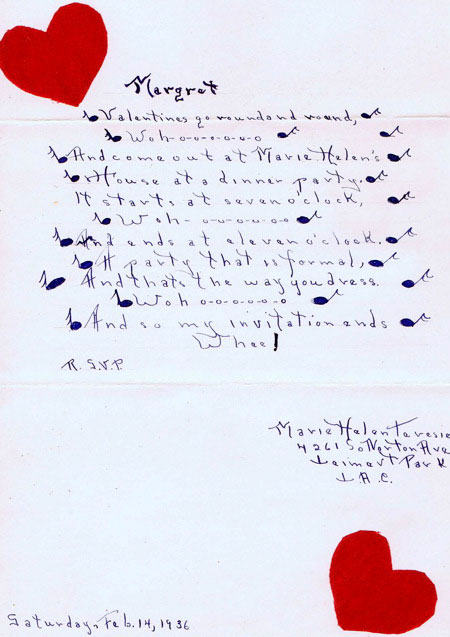 Margret
Valentines go round and round,
Woh-o-o-o-o-o-o
And come out at Marie Helen's
House at a dinner party.
It starts at seven o'clock,
Woh-o-o-o-o-o-o
And ends at eleven o'clock.
A party that is formal,
And thats the way you dress.
Woh o-o-o-o-o-o
And so my invitation ends
Whee!
R.S.V.P.
Marie Helen
4261 So Norton Ave
Leimert Park
L.A.C.
Saturday, Feb. 14, 1936